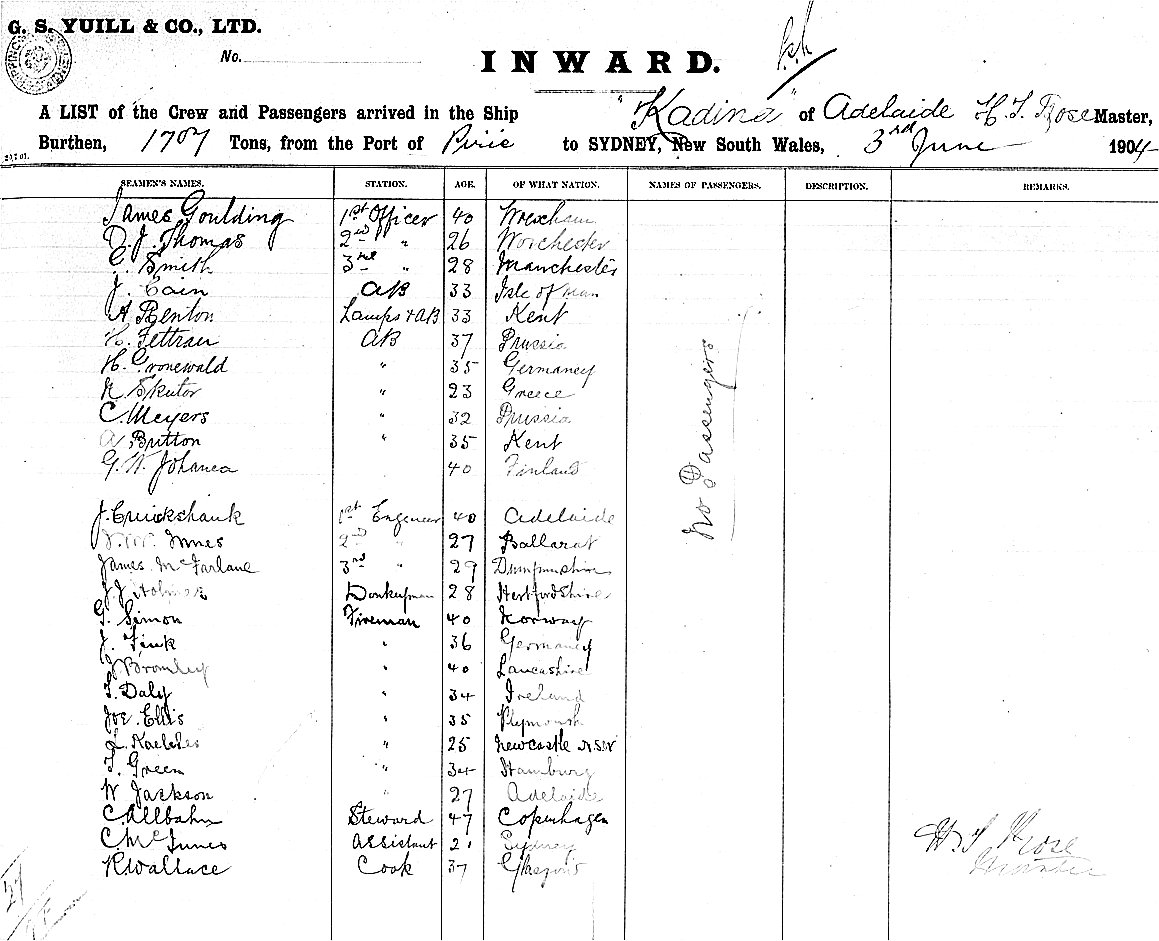 G. S. YUILL & CO., LTD.
No.
INWARD.
A LIST of the Crew and Passengers arrived in the Ship "Kadina" of Adelaide H. S. Rose Master,
Burthen, 1707 Tons, from the Port of Pirie to SYDNEY, New South Wales, 3rd June 1904
SEAMEN'S NAMES. STATION. AGE. OF WHAT NATION. NAMES OF PASSENGERS. DESCRIPTION. REMARKS.
James Goulding 1st Officer 40 Wrexham
D. J. Thomas 2nd " 26 Worchester
C. Smith 3rd " 28 Manchester
J. Cain AB 33 Isle of Man
A Benton Lamps & AB 33 Kent
H. Fettrau AB 37 Prussia
H. Gronewald " 35 Germaney
N Skutor " 23 Greece
C. Meyers " 32 Prussia
A Button " 35 Kent
G. W. Johanea 40 Finland
No Passengers
J. Cruickshank 1st Engeneer 40 Adelaide
Innes 2nd " 27 Ballarat
James McFarlane 3rd " 29
J. J. Holmes Donkeyman 28 Hertfordshire
G. Simon Fireman 40 Norway
J. Fink " 36 Germaney
J Bromley " 40 Lancashire
T. Daly " 34 Ireland
Joe Ellis " 35 Plymouth
" 25 Newcastle NSW
T. Green " 34 Hamburg
W Jackson " 27 Adelaide
C Allbahn Steward 47 Copenhagen
C. McInnes Assistant 21 Sydney
R Wallace Cook 37 Glasgow
H. S Rose
Master